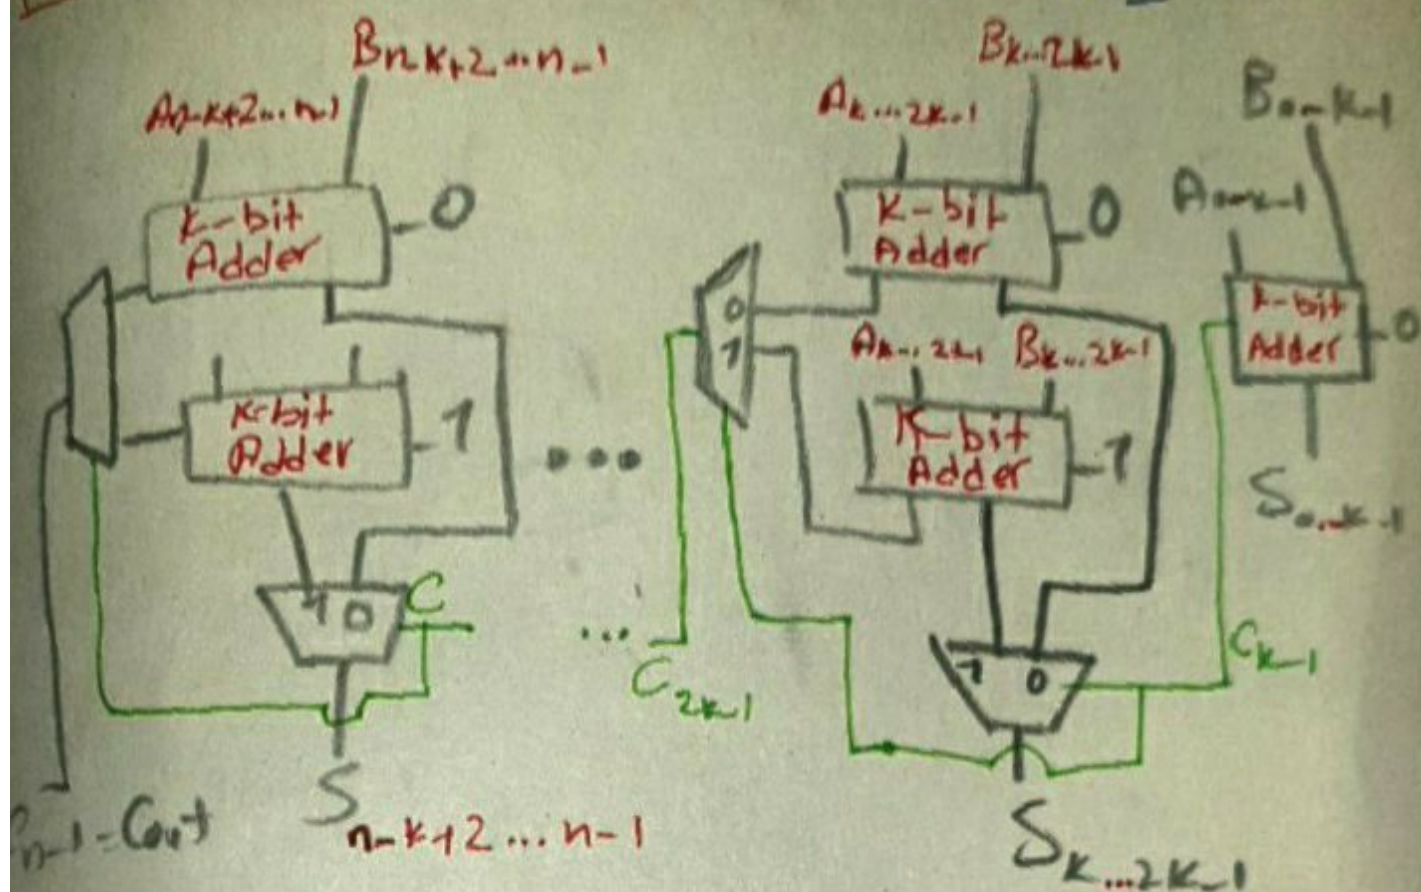 B n-k+2...n-1
A n-k+2...n-1
K-bit
Adder
0
K-bit
Adder
1
1 0
C
S n-k+2...n-1
Cn-1=Cout
...
C2k-1
Bk...2k-1
Ak...2k-1
K-bit
Adder
0
0
1
Ak...2k-1
Bk...2k-1
K-bit
Adder
1
1 0
Sk...2k-1
B0...k-1
A0...k-1
k-bit
Adder
0
S0...k-1
Ck-1